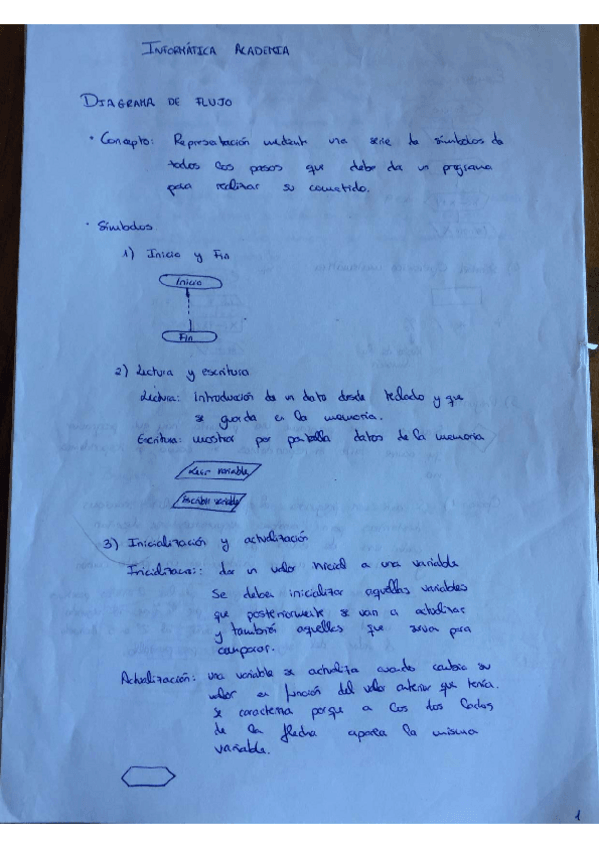 INFORMÁTICA ACADEMIA
DIAGRAMA DE FLUJO
· Concepto: Representación mediante una serie de símbolos de
todos los pasos que debe da un programa
para realizar su cometido.
· Símbolos
1) Inicio y Fin
Inicio
Fin
2) Lectura y escritura
Lectura: Introducción de un dato desde teclado y que
se guarda en la memoria.
Escritura: mostrar por pantalla datos de la memoria
Leer variable
Escribir variable
3) Inicialización y actualización
Inicialización: dar un valor inicial a una variable
Se deben inicializar aquellas variables
que posteriormente se van a actualizar
y también aquellas que sirven para
comparar.
Actualización: una variable se actualiza cuando cambia su
valor en función del valor anterior que tenía.
Se caracteriza porque a los dos lados
de la flecha aparece la misma
variable.
1